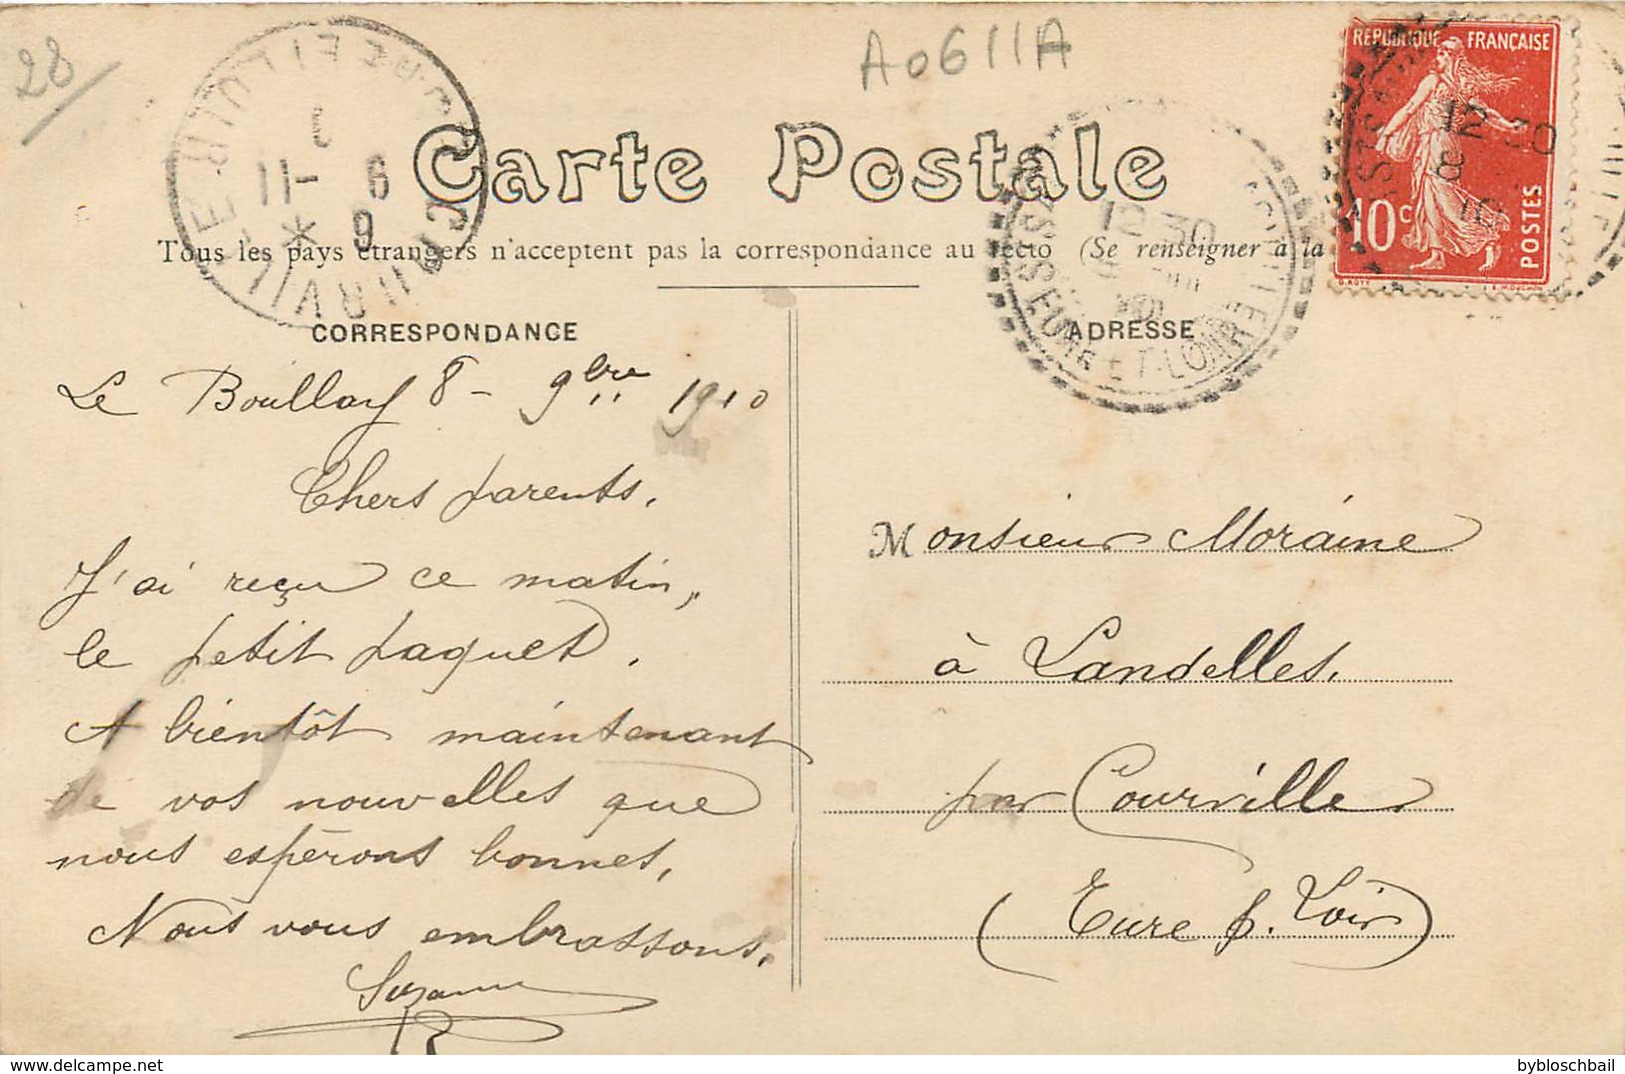 28
A0611A
RÉPUBLIQUE FRANÇAISE
10c
POSTES
Carte Postale
Tous les pays étrangers n'acceptent pas la correspondance au recto (Se renseigner à la
12 30
EURE ET-LOIR
CORRESPONDANCE
ADRESSE
Le Boullay 8 - 9bre 1910
Chers parents.
J'ai reçu ce matin,
le petit paquet.
A bientôt maintenant
de vos nouvelles que
nous espérons bonnes,
Nous vous embrassons.
Suzanne
Monsieur Moraine
à Landelles.
par Courville
(Eure &. Loir)
bybloschbail